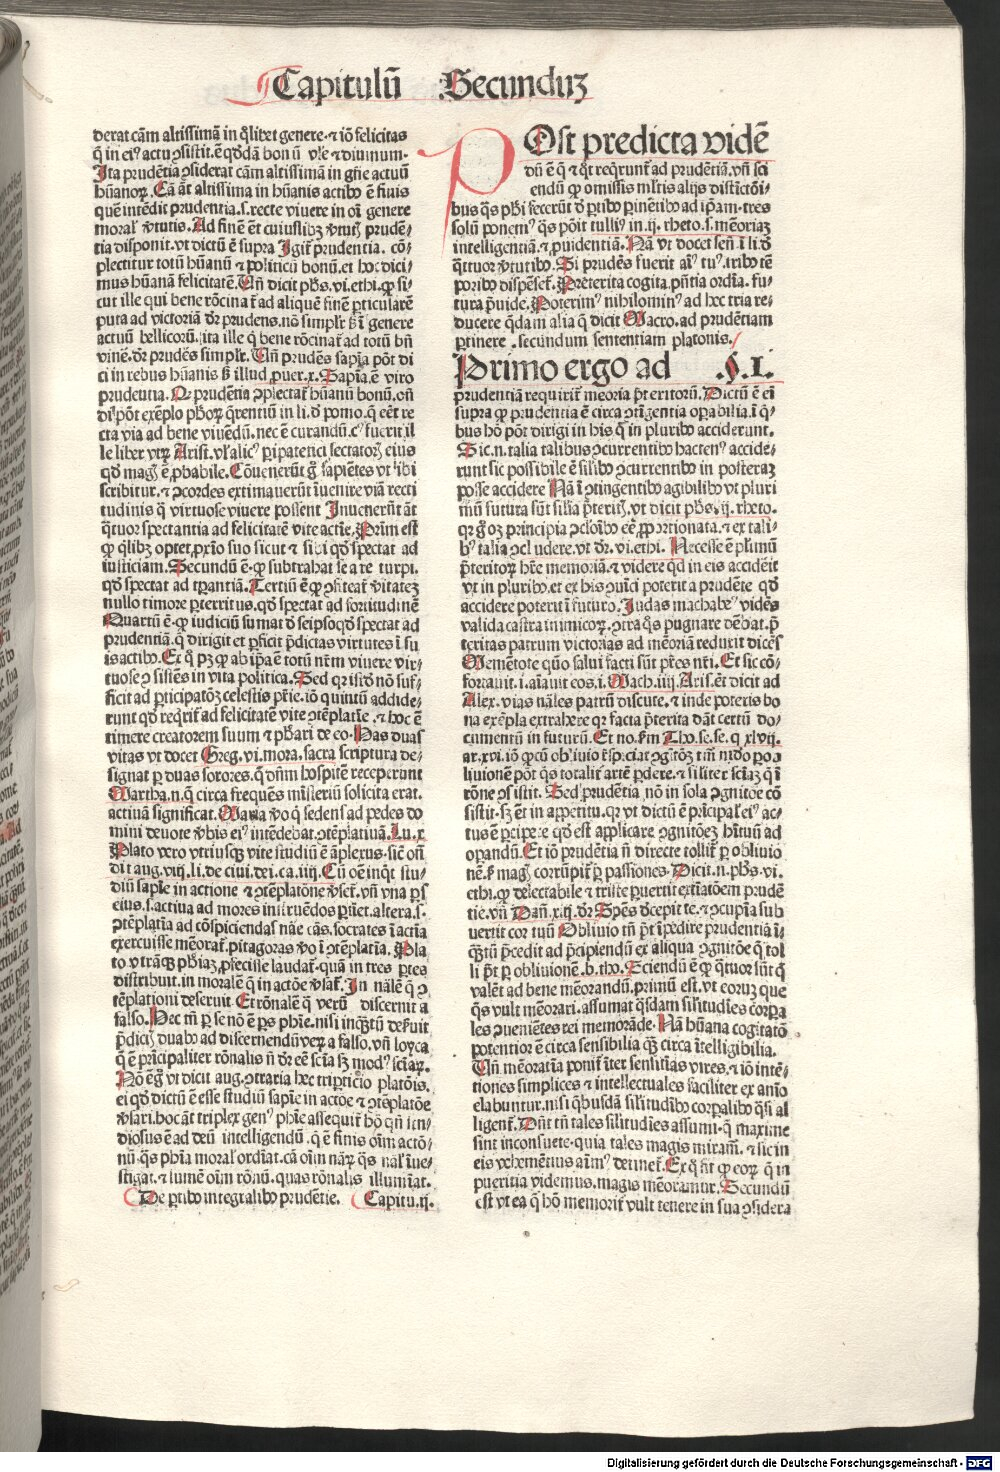 Capitulū Secunduꝫ
derat cām altissimā in q̄libet genere. ⁊ iō felicitas
q̄ in eiꝰ actu ꝯsistit. ē q̄dā bonū vl̄e ⁊ diuinum.
Ita prudētia ꝯsiderat cām altissimā in gn̄e actuū
hūanoꝝ. Ea āt altissima in hūanis actibꝰ ē finis
quē intēdit prudentia. s. recte viuere in oī genere
moral̓ v̓tutis. Ad finē em̄ cuiuslibꝫ v̓tutꝭ prudē⸗
tia disponit. vt dictū ē supra Igit̄ prudentia. cō⸗
plectitur totū hūanū ⁊ politicū bonū. et hoc dici⸗
mus hūanā felicitatē. Un̄ dicit ph̄s. vi. ethi. ꝙ si⸗
cut ille qui bene rōcinat̄ ad aliquē finē ꝑticularē
puta ad victoriā dr̄ prudens. nō simplr̄ sꝫ ī genere
actuū bellicoꝝ. ita ille q̄ bene rōcinat̄ ad totū bn̄
viuē. dr̄ prudēs simplr̄. Un̄ prudēs sapīa pōt di
ci in rebus hūanis sꝫ illud ꝓuer. x. Sapīa ē viro
prudentia. Qꝫ prudētia ꝯplectat̄ hūanū bonū. on̄
di pōt exēplo ph̄oꝝ q̄rentiū in li. d̓ pomo. q̄ eēt re
cta via ad bene viuēdū. nec ē curandū. cꝰ fuerit il
le liber vtꝝ Arist. vl̓ alicꝰ peripatenci sectatorꝭ eius
qd̓ magꝭ ē ꝓbabile. Cōuenerūt gͦ sapiētes vt ibi
scribitur. ⁊ ꝯcordes extimauerūt īuenire viā recti
tudinis q̄ virtuose viuere possent Inuenerūt āt
q̄tuor spectantia ad felicitatē vite actīe. Primū est
ꝙ q̄libꝫ optet ꝓxīo suo sicut ⁊ sibi qd̓ spectat ad
iusticiam. Secundū ē. ꝙ subtrahat se a re turpi.
qd̓ spectat ad tꝑantiā. Tertiū ē ꝙ ꝯfiteat̄ v̓itateꝫ
nullo timore ꝑterritus. qd̓ spectat ad fortitudinē
Quartū ē. ꝙ iudiciū sumat d̓ seipso qd̓ spectat ad
prudentiā. q̄ dirigit et ꝑficit p̄dictas virtutes ī su
is actibꝰ. Ex q̄ pꝫ ꝙ ab ip̄a ē totū nr̄m viuere vir⸗
tuose ꝯsistēs in vita politica. Sed qꝛ istd̓ nō suf⸗
ficit ad ꝑticipatōꝫ celestis pr̄ie. iō quintū addide⸗
runt qd̓ req̄rit̄ ad felicitatē vite ꝯtēplatīe. ⁊ hoc ē
timere creatorem suum ⁊ ꝓbari de eo. Has duas
vitas vt docet Greg. vi. mora. sacra scriptura de⸗
signat per duas sorores. q̄ dn̄m hospitē receperunt
Martha. n. q̄ circa frequēs mīsteriū solicita erat.
actiuā significat. Maria vo q̄ sedens ad pedes do
mini deuote v̓bis eiꝰ intēdebat. ꝯtēplatiuā. Lu. x
Plato vero vtriusqꝫ vite studiū ē āplexus. sic̄ on̄
dit aug. viij. li. de ciui. dei. ca. iiij. Cū oē inqt̓ stu⸗
diū sapīe in actione ⁊ ꝯtēplatōne v̓set̄. vn̄ vna pars
eius. s. actiua ad mores instruēdos ꝑtinet. altera. s.
ꝯtēplatīa ad cōspiciendas nāe cās. socrates ī actīa
exercuisse mēorat̄. pitagoras vo ī ꝯtēplatīa. Pla
to vtrāqꝫ ph̄iaꝫ ꝑfecisse laudat̄. quā in tres partes
distribuit. in moralē q̄ in actōe v̓sat̄. In nālē q̄ ꝯ
tēplationi deseruit Et rōnalē q̄ verū discernit a
falso. Hec m̄ ꝑ se nō ē ꝑs ph̄ie. nisi inqꝫtū deseruit
p̄dictꝭ duabꝰ ad discernendū veꝝ a falso. vn̄ loyca
q̄ ē prīcipaliter rōnalis n̄ dr̄ eē scīa sꝫ modꝰ sciaꝝ.
Nō ēgͦ vt dicit aug. ꝯtraria hec triꝑticio platōis.
ei qd̓ dictū ē esse studiū sapīe in actoe ⁊ ꝯtēplatōe
v̓sari. hoc āt triplex genꝰ ph̄ie assequit̄ hō q̄n stu⸗
diosus ē ad deū intelligendū. q̄ ē finis oīm actō⸗
nū. q̄s ph̄ia moral̓ ordīat. cā oīm nāꝝ q̄s nal̓ īue⸗
stigat. ⁊ lumē oīm rōnū. quas rōnalis illumīat.
De ꝑtibꝰ integralibꝰ prudētie. Capitu. ij.
POst predicta vidē
dū ē q̄ ⁊ q̄t reqrunt̄ ad prudētiā. vn̄ sci
endū ꝙ omissis ml̓tis alijs distictōi⸗
bus q̄s ph̄i fecerūt d̓ ꝑtibꝰ ꝑtinētibꝰ ad ip̄am. tres
solū ponemꝰ q̄s poīt tulliꝰ in. ij. rheto. s. mēoriaꝫ
intelligentiā. ⁊ ꝓuidentiā. Nā vt docet sen̄. ī li. d̓
q̄ttuor v̓tutibꝰ. Si prudēs fuerit aīꝰ tuꝰ. tribꝰ tē
poribꝰ dispēset̄. Preterita cogita. pn̄tia ordīa. fu⸗
tura ꝑuide. Poterimꝰ nihilominꝰ ad hec tria re⸗
ducere q̄dam alia q̄ dicit Macro. ad prudētiam
ꝑtinere. secundum sententiam platonis.
Primo ergo ad .§. I.
prudentiā requirit̄ mēoria p̄teritorū. Dictū ē ei
supra ꝙ prudentia ē circa ꝯtīgentia oꝑabilia. ī q̄⸗
bus hō pōt dirigi in his q̄ in pluribꝰ acciderunt.
Sic. n. talia talibus ꝯcurrentibꝰ hactenꝰ accide⸗
runt sic possibile ē silibꝰ ꝯcurrentibꝰ in posteraꝫ
posse accidere Nā ī ꝯtingentibꝰ agibilibꝰ vt pluri
mū futura sūt silia p̄teritꝭ. vt dicit ph̄s. ij. rheto.
qꝛ gͦ oꝫ principia ꝯclōibꝰ eē ꝓportionata. ⁊ ex tali⸗
bꝰ talia ꝯcludere. vt dr̄. vi. ethi. Necesse ē pl̓imū
p̄teritoꝝ hr̄e memoriā. ⁊ videre qd̓ in eis acciderit
vt in pluribꝰ. et ex his quīci poterit a prudēte qd̓
accidere poterit ī futuro. Judas machabeꝰ vidēs
valida castra inimicoꝝ. ꝯtra q̄s pugnare dēbat. p̄
teritas patrum victorias ad mēoriā reduxit dicēs
Memētote quō salui facti sūt pr̄es nr̄i. Et sic cō⸗
fortauit. ⁊ aīauit eos. i. Mach. iiij. Aris. et̄ dicit ad
Alex. vias nāles patrū discute. ⁊ inde poteris bo
na exēpla extrahere qꝛ facta p̄terita dāt certū do⸗
cumentū in futurū. Et no. scḋm Tho. se. se. q. xlvij.
ar. xvi. iō ꝙ cū obliuio respiciat ꝯgitōꝫ tm̄ nido p̄ o⸗
bliuionē pōt q̄s totalit̓ artē ꝑdere. ⁊ siliter sciaꝫ q̄ ī
rōne ꝯsistit. Sed prudētia nō in sola ꝯgnitōe cō
sistit. sꝫ et̄ in appetitu. qꝛ vt dictū ē prīcipal̓ eiꝰ ac⸗
tus ē p̄cipere qd̓ est applicare ꝯgnitōeꝫ hītuū ad
oꝑandū. Et iō prudētia n̄ directe tollit̄ ꝑ obliuio
nē. sꝫ magꝭ corrūpit̄ ꝑ passiones. Dicit. n. ph̄s. vi.
ethi. ꝙ delectabile ⁊ triste ꝑuertit extiatōem prudē
tie. vn̄ Dan̄. xiij. dr̄. Spēs d̓cepit te. ⁊ ꝯcupīa sub
uertit cor tuū Obliuio tn̄ pōt īpedire prudentiā ī⸗
qꝫtū p̄cedit ad p̄cipiendū ex aliqua ꝯgnitōe q̄ tol
li pōt ꝑ obliuionē. b. tho. Sciendū ē ꝙ q̄tuor sūt q̄
valēt ad bene mēorandū. primū est. vt eorum que
q̄s vult mēorari. assumat q̄sdam silitudīes corꝑa
les ꝯuenientes rei memorāde. Nā hūana cogitatō
potentior ē circa sensibilia qꝫ circa ītelligibilia.
Un̄ mēoratīa ponit̄ īter sensitīas vires. ⁊ iō intē⸗
tiones simplices ⁊ intellectuales faciliter ex anīo
elabuntur. nisi q̄busdā silitudībꝰ corꝑalibꝰ q̄si al
ligent̄. Dn̄t tn̄ tales silitudīes assumi. q̄ maxime
sint inconsuete. quia tales magis mirant̄. ⁊ sic in
eis vehemētius aīmꝰ detinet̄. Ex q̄ fit ꝙ eoꝝ q̄ in
pueritia videmus. magis mēoramur. Secundū
est vt ea q̄ hō memorit̓ vult tenere in sua ꝯsidera
Digitalisierung gefördert durch die Deutsche Forschungsgemeinschaft - DFG